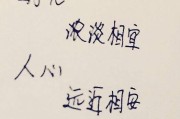 浓淡相宜
人心
远近相安